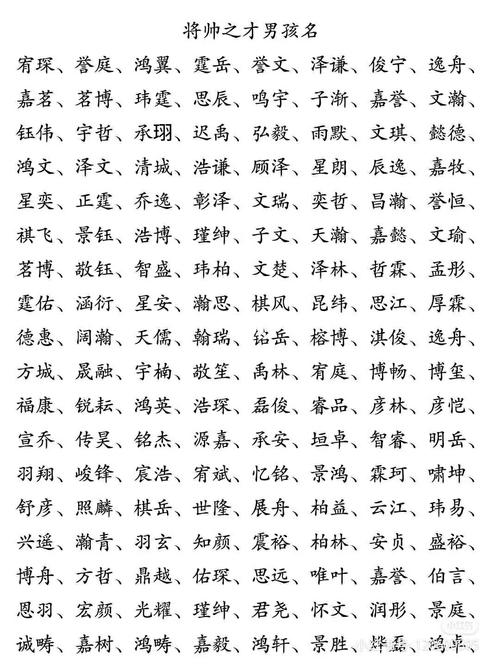 将帅之才男孩名
宥琛、誉庭、鸿翼、霆岳、誉文、泽谦、俊宁、逸舟、
嘉茗、茗博、玮霆、思辰、鸣宇、子渐、嘉誉、文瀚、
钰伟、宇哲、承珝、迟禹、弘毅、雨默、文琪、懿德、
鸿文、泽文、清城、浩谦、顾泽、星朗、辰逸、嘉牧、
星奕、正霆、乔逸、彰泽、文瑞、奕哲、昌瀚、誉恒、
祺飞、景钰、浩博、瑾绅、子文、天瀚、嘉懿、文瑜、
茗博、敬钰、智盛、玮柏、文楚、泽林、哲霖、孟彤、
霆佑、涵衍、星安、瀚思、棋风、昆纬、思江、厚霖、
德惠、阔瀚、天儒、翰瑞、岳、榕博、淇俊、逸舟、
方城、晟融、宇楠、敬笙、禹林、宥庭、博畅、博玺、
福康、锐耘、鸿英、浩琛、磊俊、睿品、彦林、彦恺、
宣乔、传昊、铭杰、源嘉、承安、垣卓、智睿、明岳、
羽翔、峻锋、宸浩、宥斌、忆铭、景鸿、霖珂、啸坤、
舒彦、照麟、棋岳、世隆、展舟、柏益、云江、玮易、
兴遥、瀚青、羽玄、知颜、震裕、柏林、安贞、盛裕、
博舟、方哲、鼎越、佑琛、思远、唯叶、嘉誉、伯言、
恩羽、宏颜、光耀、瑾绅、君尧、怀文、润彤、景庭、
诚畴、嘉树、鸿畴、嘉毅、鸿轩、景胜、磊、鸿卓、